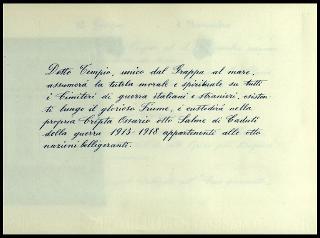 Detto Tempio, unico dal Grappa al mare,
assumerà la tutela morale e spirituale su tutti
i Cimiteri di guerra italiani e stranieri, esisten-
ti lungo il glorioso Fiume, e custodirà nella
propria Cripta Ossario otto Salme di Caduti
della guerra 1915-1918 appartenenti alle otto
nazioni belligeranti.